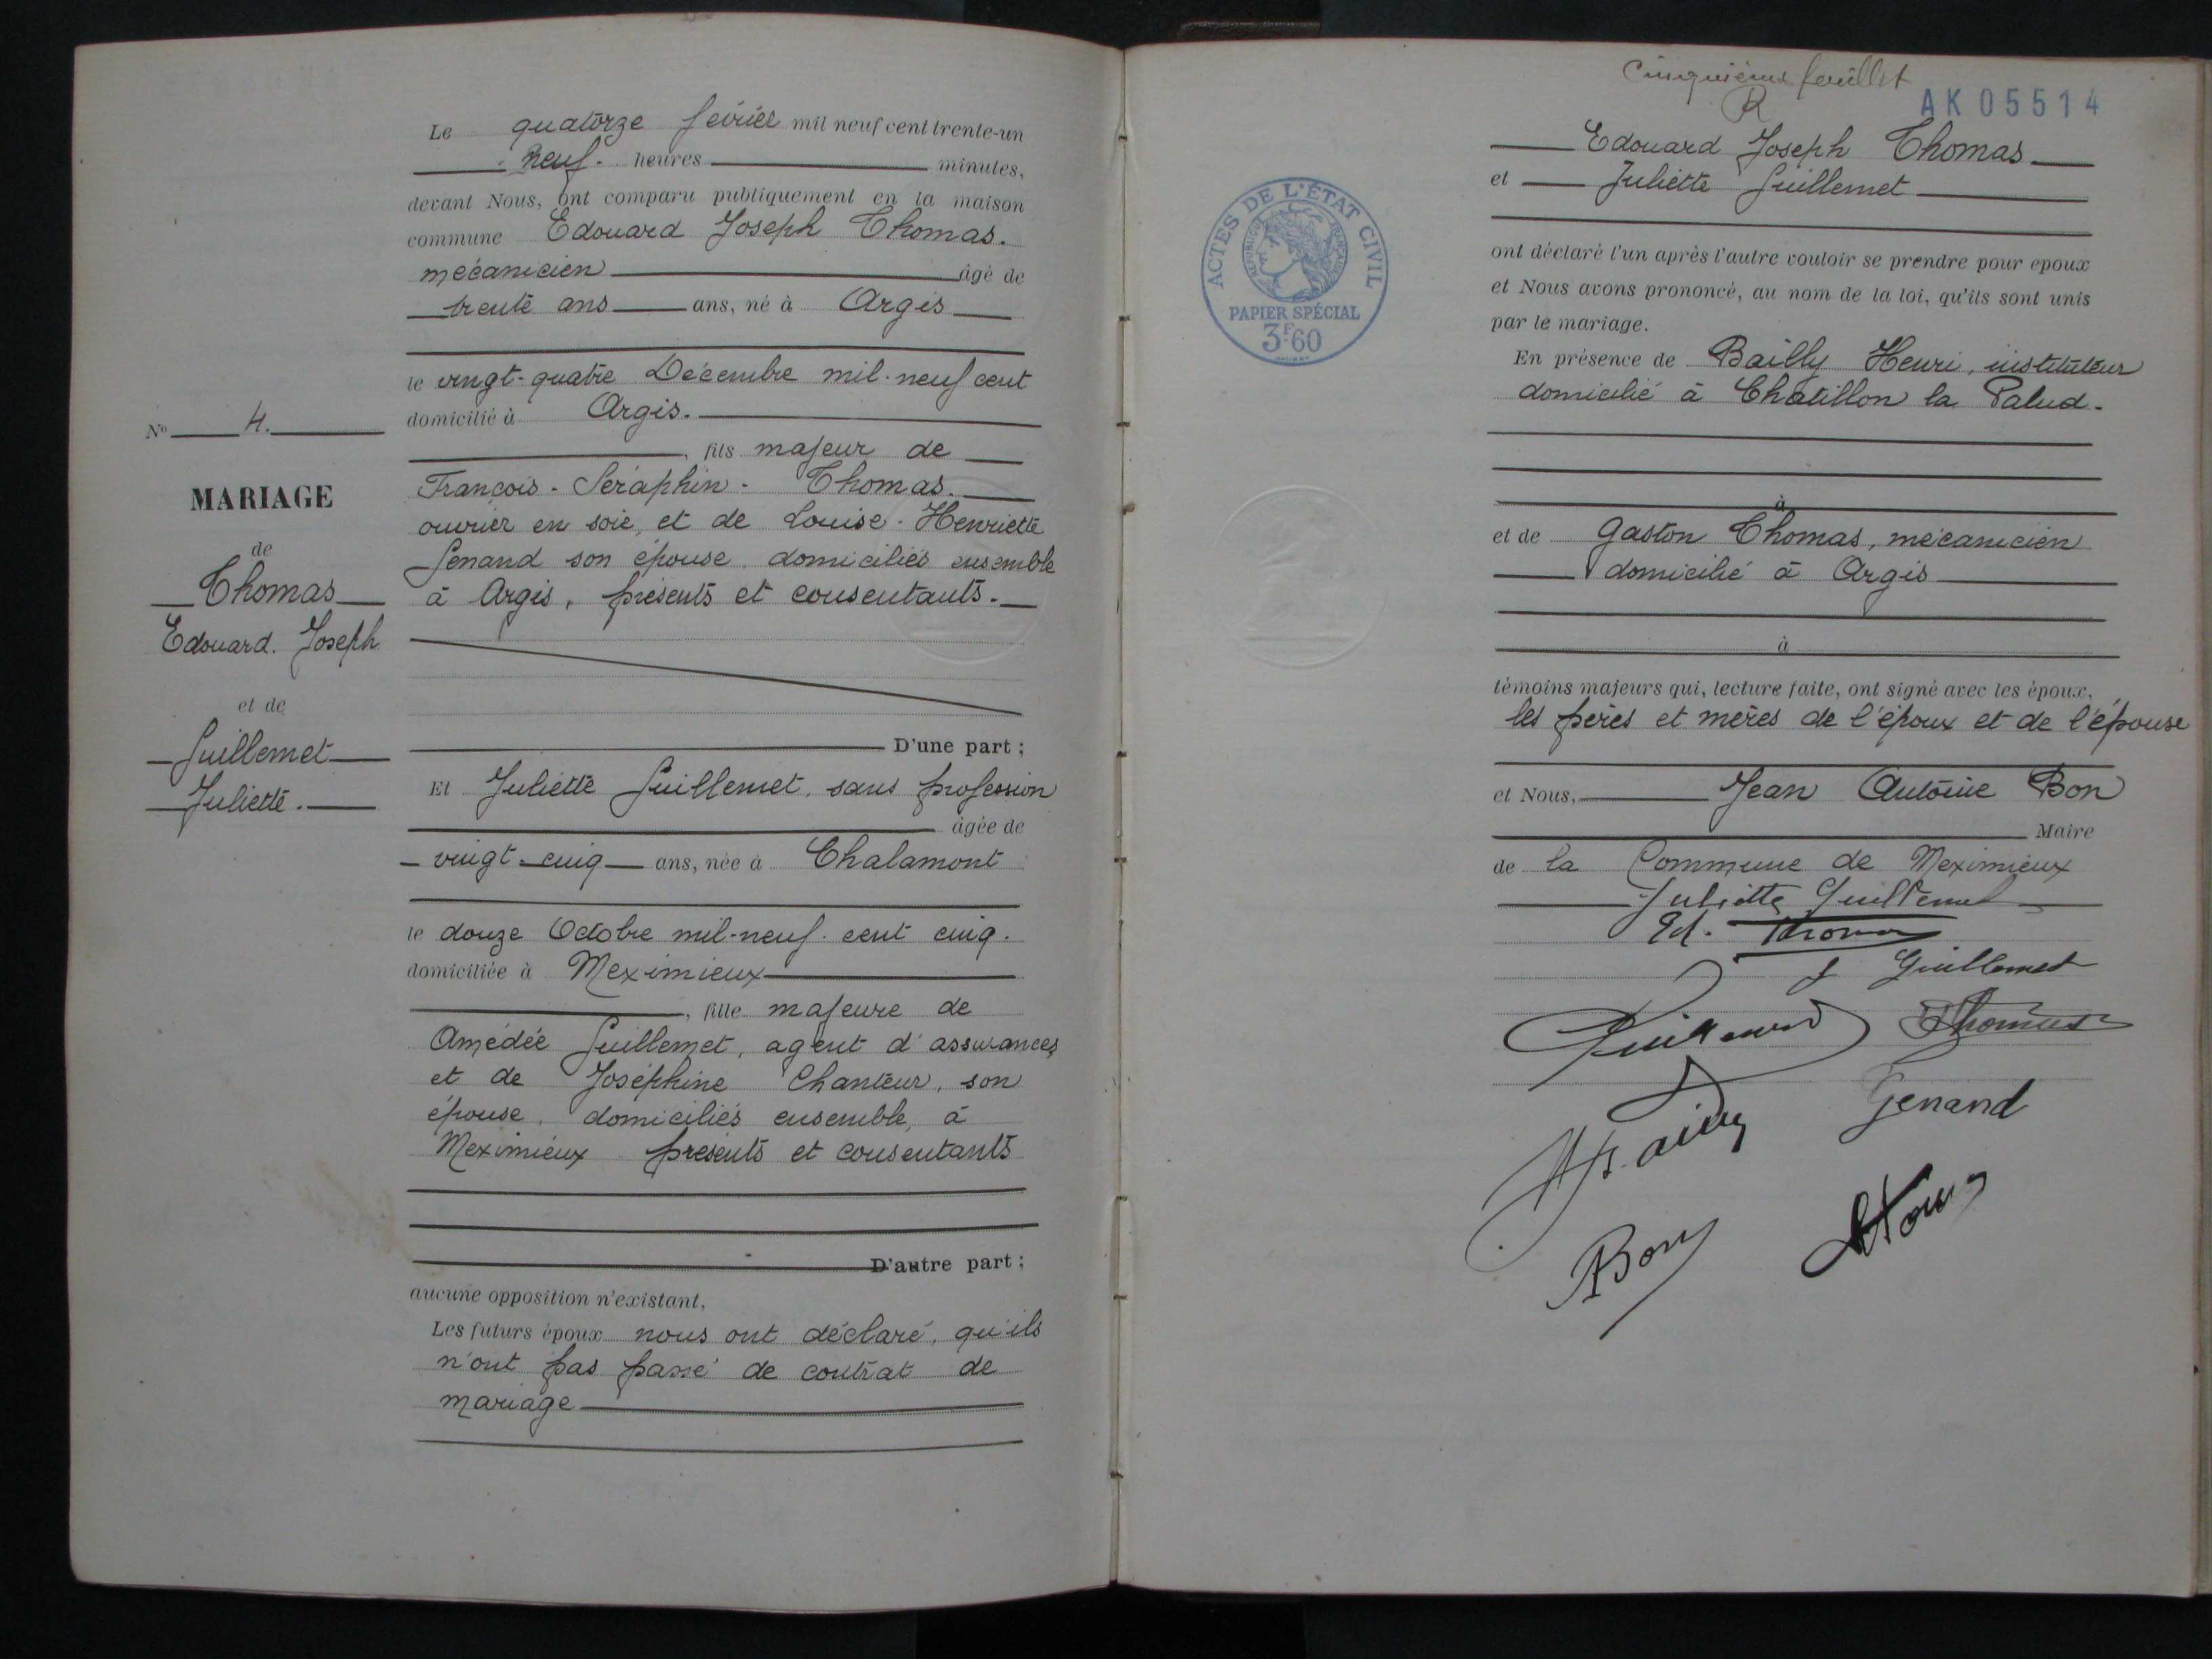 Le quatorze février mil neuf cent trente-un
neuf heures minutes,
devant Nous, ont comparu publiquement en la maison
commune Edouard Joseph Thomas.
mécanicien âgé de
trente ans ans, né à Argis
le vingt-quatre Décembre mil-neuf cent
domicilié à Argis.
, fils majeur de
François-Séraphin-Thomas.
ouvrier en soie, et de Louise-Henriette
Genand son épouse, domiciliés ensemble
à Argis, présents et consentants.
D'une part ;
Et Juliette Guillemet, sans profession
âgée de
vingt-cinq ans, née à Chalamont
le douze Octobre mil-neuf-cent cinq.
domiciliée à Meximieux
, fille majeure de
Amédée Guillemet, agent d'assurances
et de Joséphine Chanteur, son
épouse, domiciliés ensemble, à
Meximieux présents et consentants
D'autre part ;
aucune opposition n'existant,
Les futurs époux nous ont déclaré, qu'ils
n'ont pas passé de contrat de
mariage
No 4.
MARIAGE
de
Thomas
Edouard. Joseph
et de
Guillemet
Juliette.
Cinquième feuillet
R
AK05514
Edouard Joseph Thomas
et Juliette Guillemet
ACTES DE L'ÉTAT CIVIL
RÉPUBLIQUE FRANÇAISE
PAPIER SPÉCIAL
3F60
ont déclaré l'un après l'autre vouloir se prendre pour époux
et Nous avons prononcé, au nom de la loi, qu'ils sont unis
par le mariage.
En présence de Bailly Henri, instituteur
domicilié à Chatillon la Palud.
à
et de Gaston Thomas, mécanicien
domicilié à Argis
à
témoins majeurs qui, lecture faite, ont signé avec les époux,
les pères et mères de l'époux et de l'épouse
et Nous, Jean Antoine Bon
Maire
de la Commune de Meximieux
Juliette Guillemet
Ed. Thomas
J Guillemet
Guillemet Thomas
H. Bailly Genand
Bon